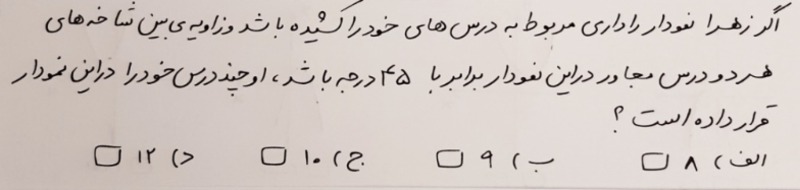 اگر زهرا نمودار راداری مربوط به درس های خود را کشیده باشد و زاویه ی بین شاخه های
هر دو درس مجاور در این نمودار برابر با ۴۵ درجه باشد، او چند درس خود را در این نمودار
قرار داده است ؟
الف) ۸ ب) ۹ ج) ۱۰ د) ۱۲